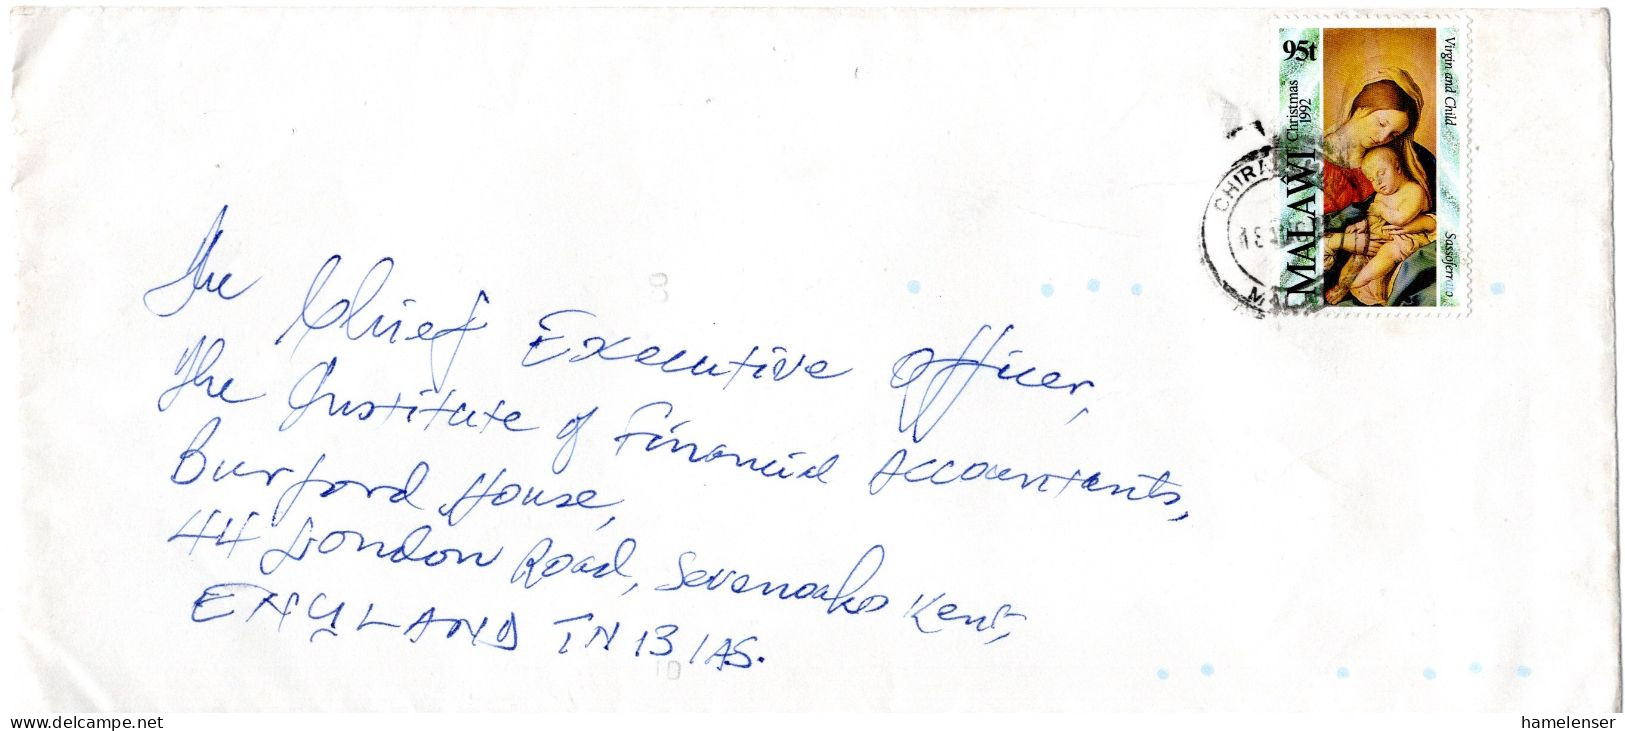 95t
Christmas
1992
MALAWI
Virgin and Child
Sassoferrato
The Chief Executive Officer,
The Institute of Financial Accountants,
Burford House,
44 London Road, Sevenoaks Kent,
ENGLAND TN13 1AS.
www.delcampe.net
hamelenser